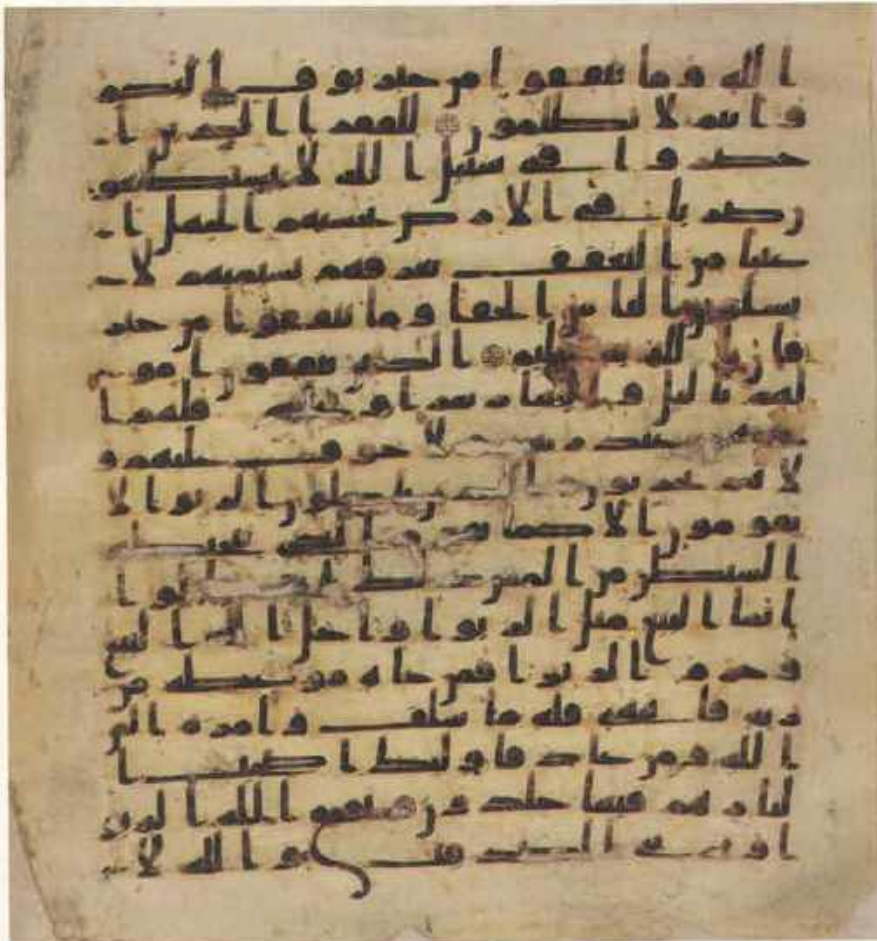 الله وما تنفقوا من خير يوف اليكم
وانتم لا تظلمون للفقرا الذين ا
حصروا في سبيل الله لا يستطيعو
ن ضربا في الارض يحسبهم الجهل ا
غنيا من التعفف تعرفهم بسيمهم لا
يسلون الناس الحفا وما تنفقوا من خير
فان الله به عليم الذين ينفقون امو
لهم باليل والنهار سرا وعلنيه فلهم ا
جرهم عند ربهم ولا خوف عليهم و
لا هم يحزنون الذين ياكلون الربوا لا
يقومون الا كما يقوم الذي يتخبطه
الشيطن من المس ذلك بانهم قالوا
انما البيع مثل الربوا واحل الله البيع
وحرم الربوا فمن جاه موعظه من
ربه فانتهى فله ما سلف وامره الى
الله ومن عاد فاوليك اصحب ا
لنار هم فيها خلدون يمحق الله الربو
ا ويربي الصدقت والله لا